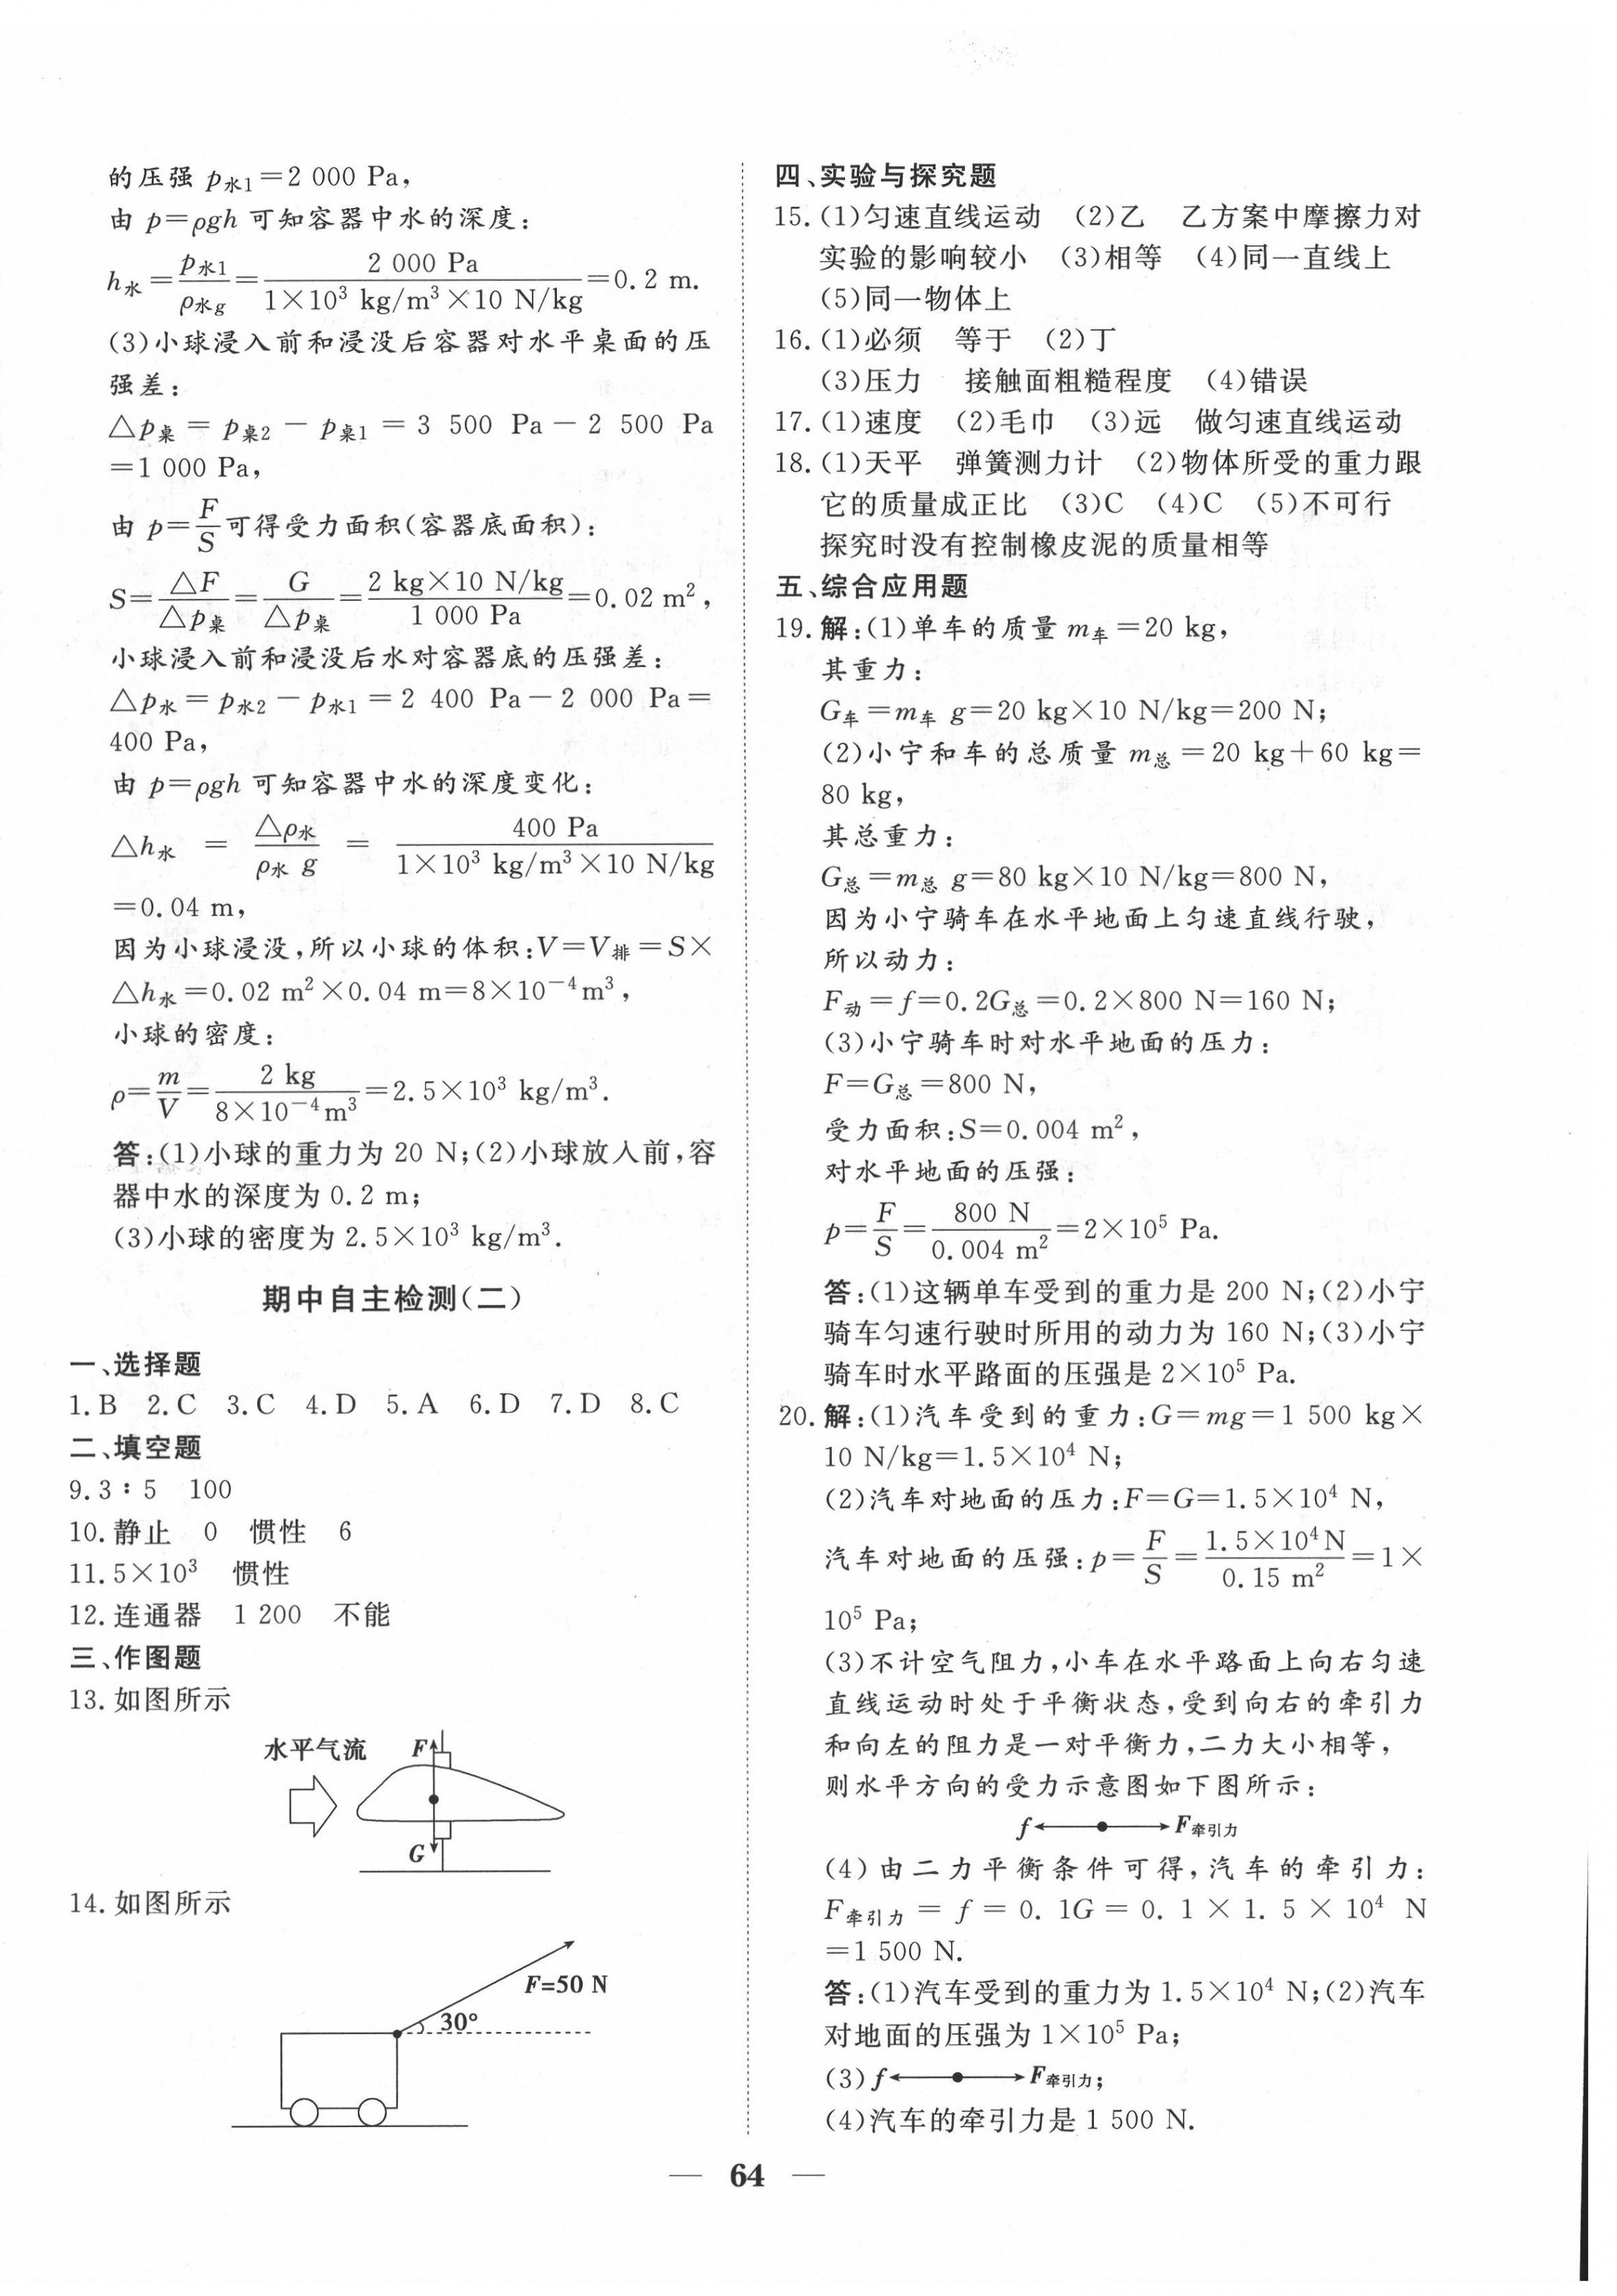 的压强 p水1=2 000 Pa,
由 p=ρgh 可知容器中水的深度:
h水=p水1/ρ水g=2 000 Pa/1×10³ kg/m³×10 N/kg=0.2 m.
(3)小球浸入前和浸没后容器对水平桌面的压
强差:
△p桌 = p桌2 − p桌1 = 3 500 Pa − 2 500 Pa
=1 000 Pa,
由 p=F/S可得受力面积(容器底面积):
S=△F/△p桌=G/△p桌=2 kg×10 N/kg/1 000 Pa=0.02 m²,
小球浸入前和浸没后水对容器底的压强差:
△p水 = p水2 − p水1 = 2 400 Pa − 2 000 Pa =
400 Pa,
由 p=ρgh 可知容器中水的深度变化:
△h水 = △ρ水/ρ水 g = 400 Pa/1×10³ kg/m³×10 N/kg
=0.04 m,
因为小球浸没,所以小球的体积:V=V排=S×
△h水=0.02 m²×0.04 m=8×10⁻⁴m³,
小球的密度:
ρ=m/V=2 kg/8×10⁻⁴m³=2.5×10³ kg/m³.
答:(1)小球的重力为 20 N;(2)小球放入前,容
器中水的深度为 0.2 m;
(3)小球的密度为 2.5×10³ kg/m³.
期中自主检测(二)
一、选择题
1.B 2.C 3.C 4.D 5.A 6.D 7.D 8.C
二、填空题
9.3∶5 100
10.静止 0 惯性 6
11.5×10³ 惯性
12.连通器 1 200 不能
三、作图题
13.如图所示
水平气流 F
G
14.如图所示
F=50 N
30°
四、实验与探究题
15.(1)匀速直线运动 (2)乙 乙方案中摩擦力对
实验的影响较小 (3)相等 (4)同一直线上
(5)同一物体上
16.(1)必须 等于 (2)丁
(3)压力 接触面粗糙程度 (4)错误
17.(1)速度 (2)毛巾 (3)远 做匀速直线运动
18.(1)天平 弹簧测力计 (2)物体所受的重力跟
它的质量成正比 (3)C (4)C (5)不可行
探究时没有控制橡皮泥的质量相等
五、综合应用题
19.解:(1)单车的质量 m车=20 kg,
其重力:
G车=m车 g=20 kg×10 N/kg=200 N;
(2)小宁和车的总质量 m总=20 kg+60 kg=
80 kg,
其总重力:
G总=m总 g=80 kg×10 N/kg=800 N,
因为小宁骑车在水平地面上匀速直线行驶,
所以动力:
F动=f=0.2G总=0.2×800 N=160 N;
(3)小宁骑车时对水平地面的压力:
F=G总=800 N,
受力面积:S=0.004 m²,
对水平地面的压强:
p=F/S=800 N/0.004 m²=2×10⁵ Pa.
答:(1)这辆单车受到的重力是 200 N;(2)小宁
骑车匀速行驶时所用的动力为 160 N;(3)小宁
骑车时水平路面的压强是 2×10⁵ Pa.
20.解:(1)汽车受到的重力:G=mg=1 500 kg×
10 N/kg=1.5×10⁴ N;
(2)汽车对地面的压力:F=G=1.5×10⁴ N,
汽车对地面的压强:p=F/S=1.5×10⁴N/0.15 m²=1×
10⁵ Pa;
(3)不计空气阻力,小车在水平路面上向右匀速
直线运动时处于平衡状态,受到向右的牵引力
和向左的阻力是一对平衡力,二力大小相等,
则水平方向的受力示意图如下图所示:
f F牵引力
(4)由二力平衡条件可得,汽车的牵引力:
F牵引力 = f = 0.1G = 0.1 × 1.5 × 10⁴ N
=1 500 N.
答:(1)汽车受到的重力为 1.5×10⁴ N;(2)汽车
对地面的压强为 1×10⁵ Pa;
(3)f F牵引力;
(4)汽车的牵引力是 1 500 N.
— 64 —